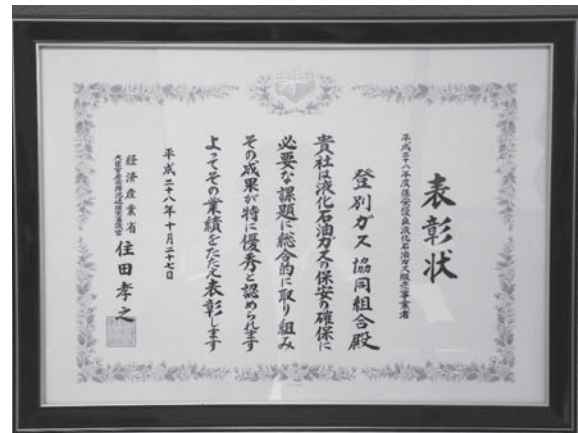 表彰状
平成二十八年度保安優良液化石油ガス販売事業者
登別ガス協同組合殿
貴社は液化石油ガスの保安の確保に
必要な課題に総合的に取り組み
その成果が特に優秀と認められます
よってその業績をたたえ表彰します
平成二十八年十月二十七日
経済産業省
住田孝之